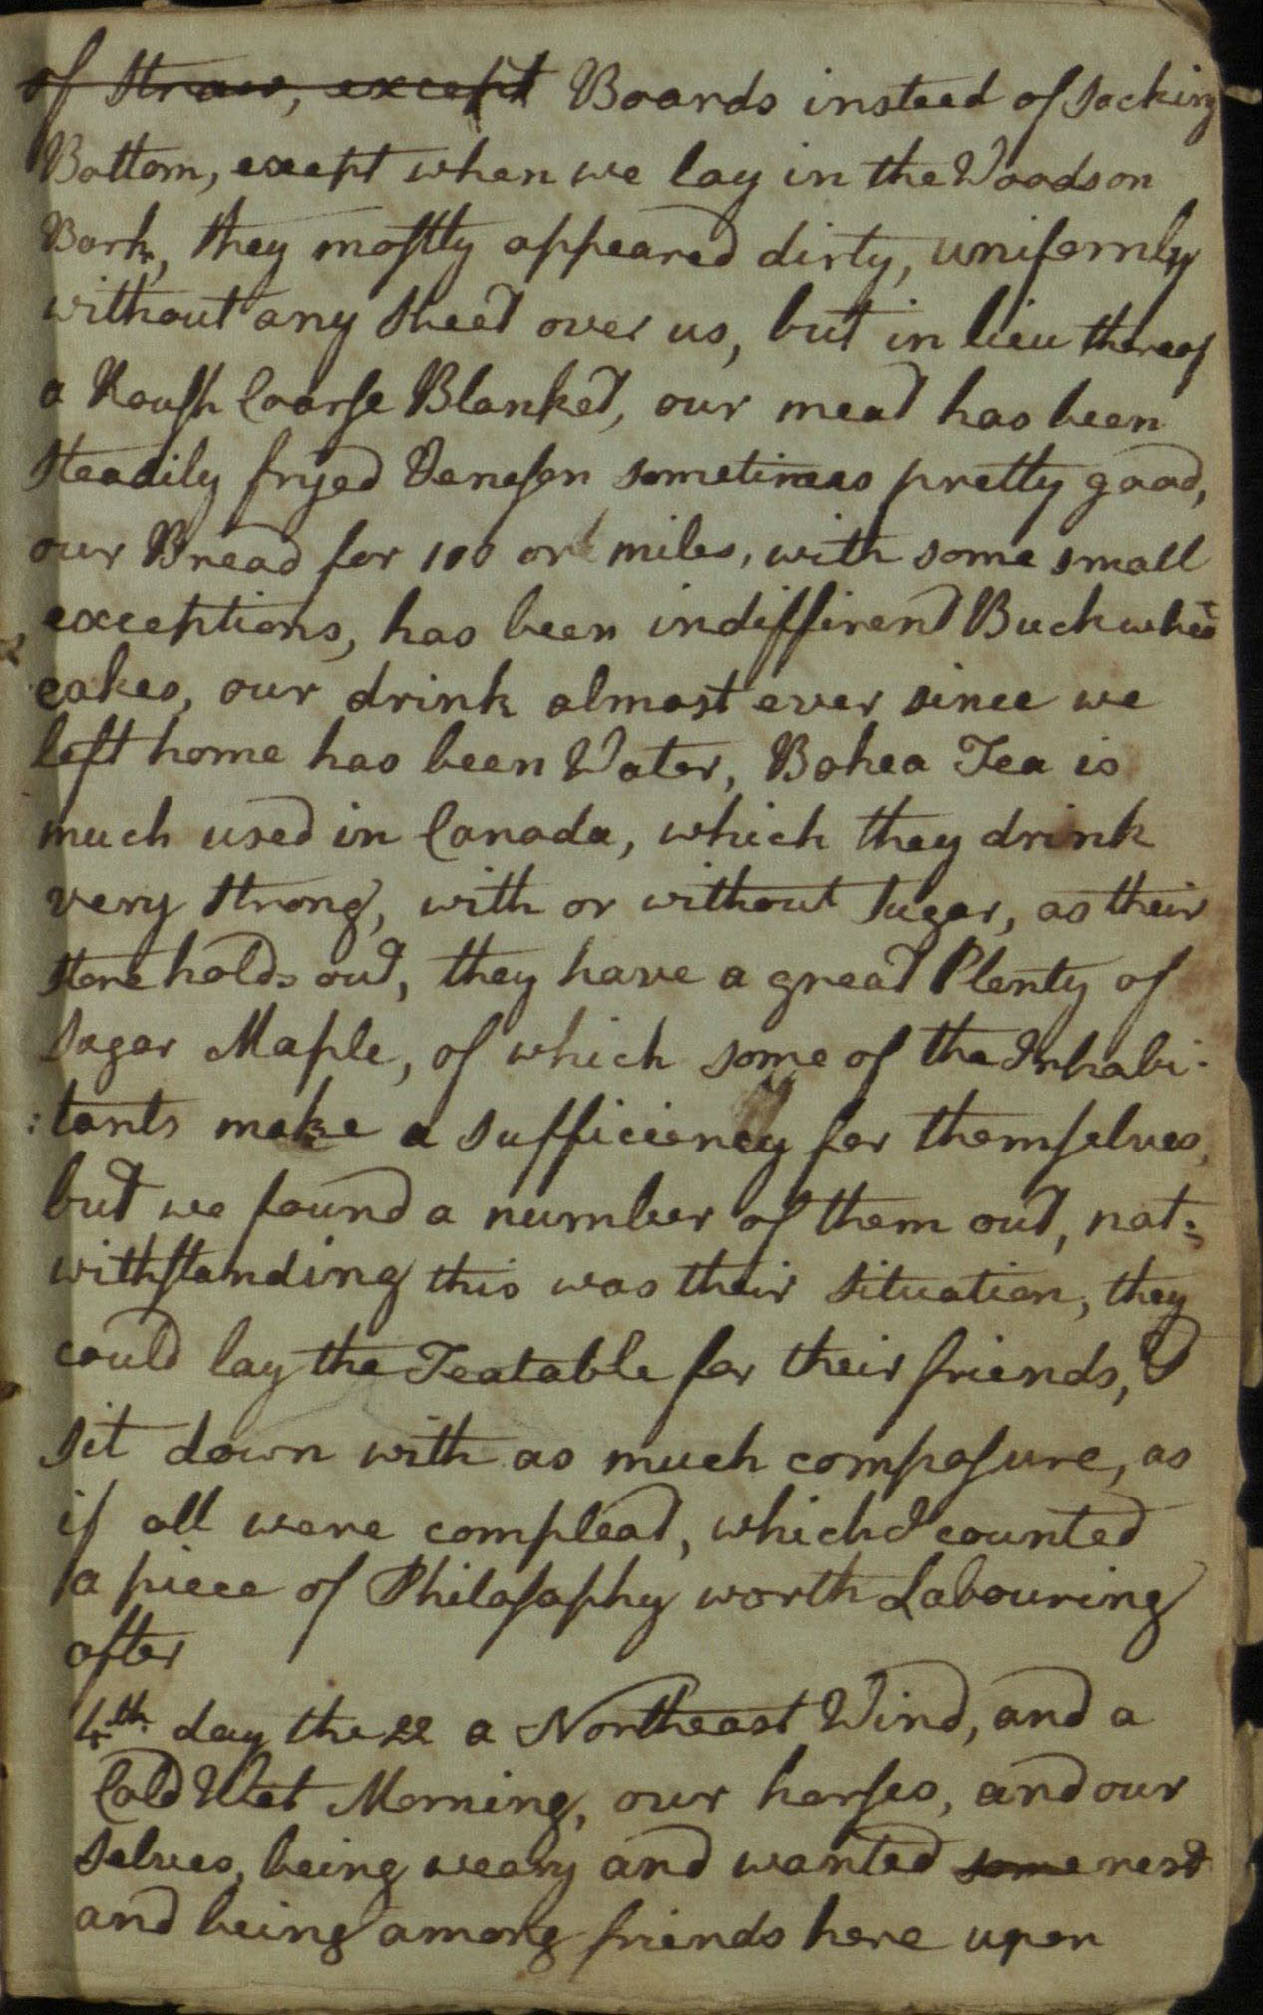 of Straw, except Boards instead of sacking
Bottom, except when we lay in the Woods on
Bark, they mostly appeared dirty, uniformly
without any Sheet over us, but in lieu thereof
a Rough Coarse Blanket, our meat has been
steadily fryed Veneson sometimes pretty good,
our Bread for 100 or miles, with some small
exceptions, has been indifferent Buckwheat
cakes, our drink almost ever since we
left home has been Water, Bohea Tea is
much used in Canada, which they drink
very strong, with or without Sugar, as their
store holds out, they have a great Plenty of
Sugar Maple, of which some of the Inhabi-
:tants make a sufficiency for themselves,
but we found a number of them out, not:
withstanding this was their situation, they
could lay the Teatable for their friends, &
sit down with as much composure, as
if all were compleat, which I counted
a piece of Philosophy worth Labouring
after
4th. day the 22 a Northeast Wind, and a
Cold Wet Morning, our horses, and our
selves, being weary and wanted some rest
and being among friends here upon